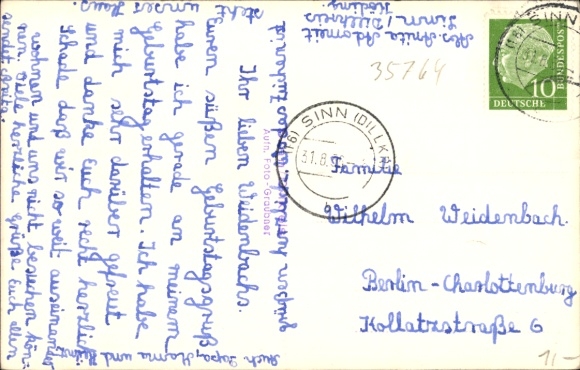 Abs. Anita Adomeit
Sinn/Dillkreis
35764
(16) SINN (DILLKR)
31.8.
10
DEUTSCHE
BUNDESPOST
Auto-Foto-Graubner
Familie
Wilhelm Weidenbach.
Berlin-Charlottenburg
Kollatzstraße 6
1/-
Ihr lieben Weidenbachs.
Euren süßen Geburtstagsgruß
habe ich gerade an meinem
Geburtstag erhalten. Ich habe
mich sehr darüber gefreut
und danke Euch recht herzlich.
Schade daß wir so weit auseinander
wohnen und uns nicht besuchen kön-
nen. Viele herzliche Grüße Euch allen
sendet Anita.
Auch Papa, Mama und
grüßen
steht
unser Haus.